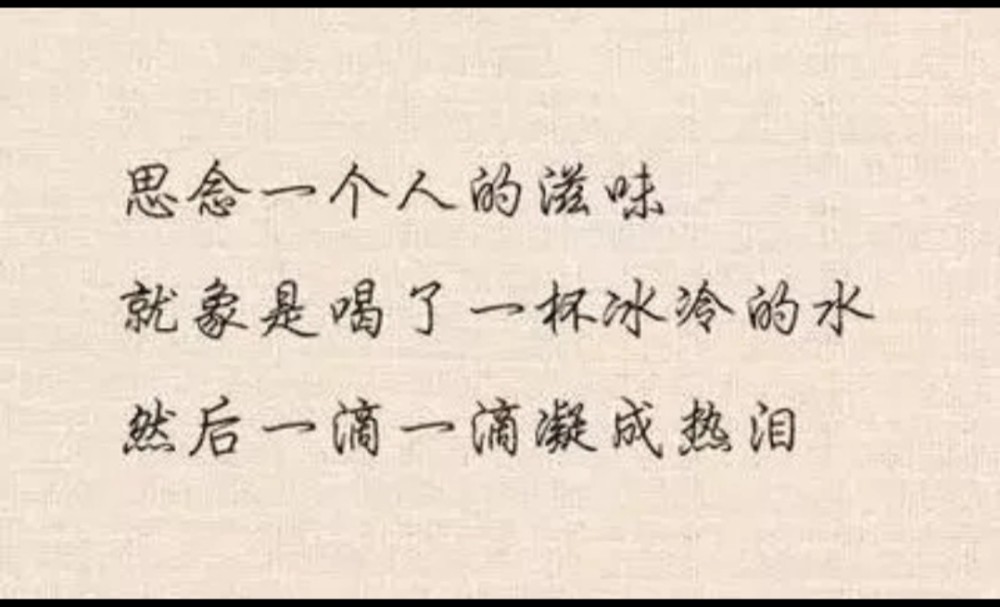 思念一个人的滋味
就象是喝了一杯冰冷的水
然后一滴一滴凝成热泪